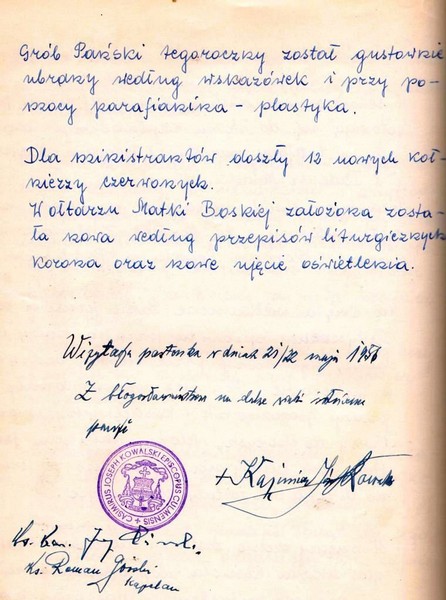 Grób Pański tegoroczny został gustownie
ubrany według wskazówek i przy po-
mocy parafianina - plastyka.
Dla ministrantów doszły 12 nowych koł-
nierzy czerwonych.
W ołtarzu Matki Boskiej założona zosta-
ła nowa według przepisów liturgicznych
korona oraz nowe ujęcie oświetlenia.
Wizytacja pasterska w dniach 21/22 maja 1956
Z błogosławieństwem na dalsze
parafii
+ Kazimierz Józef Kowalski
CASIMIRUS JOSEPH KOWALSKI EPISCOPUS CULMENSIS
Ks. Kan.
Ks. Roman Górski
Kapelan